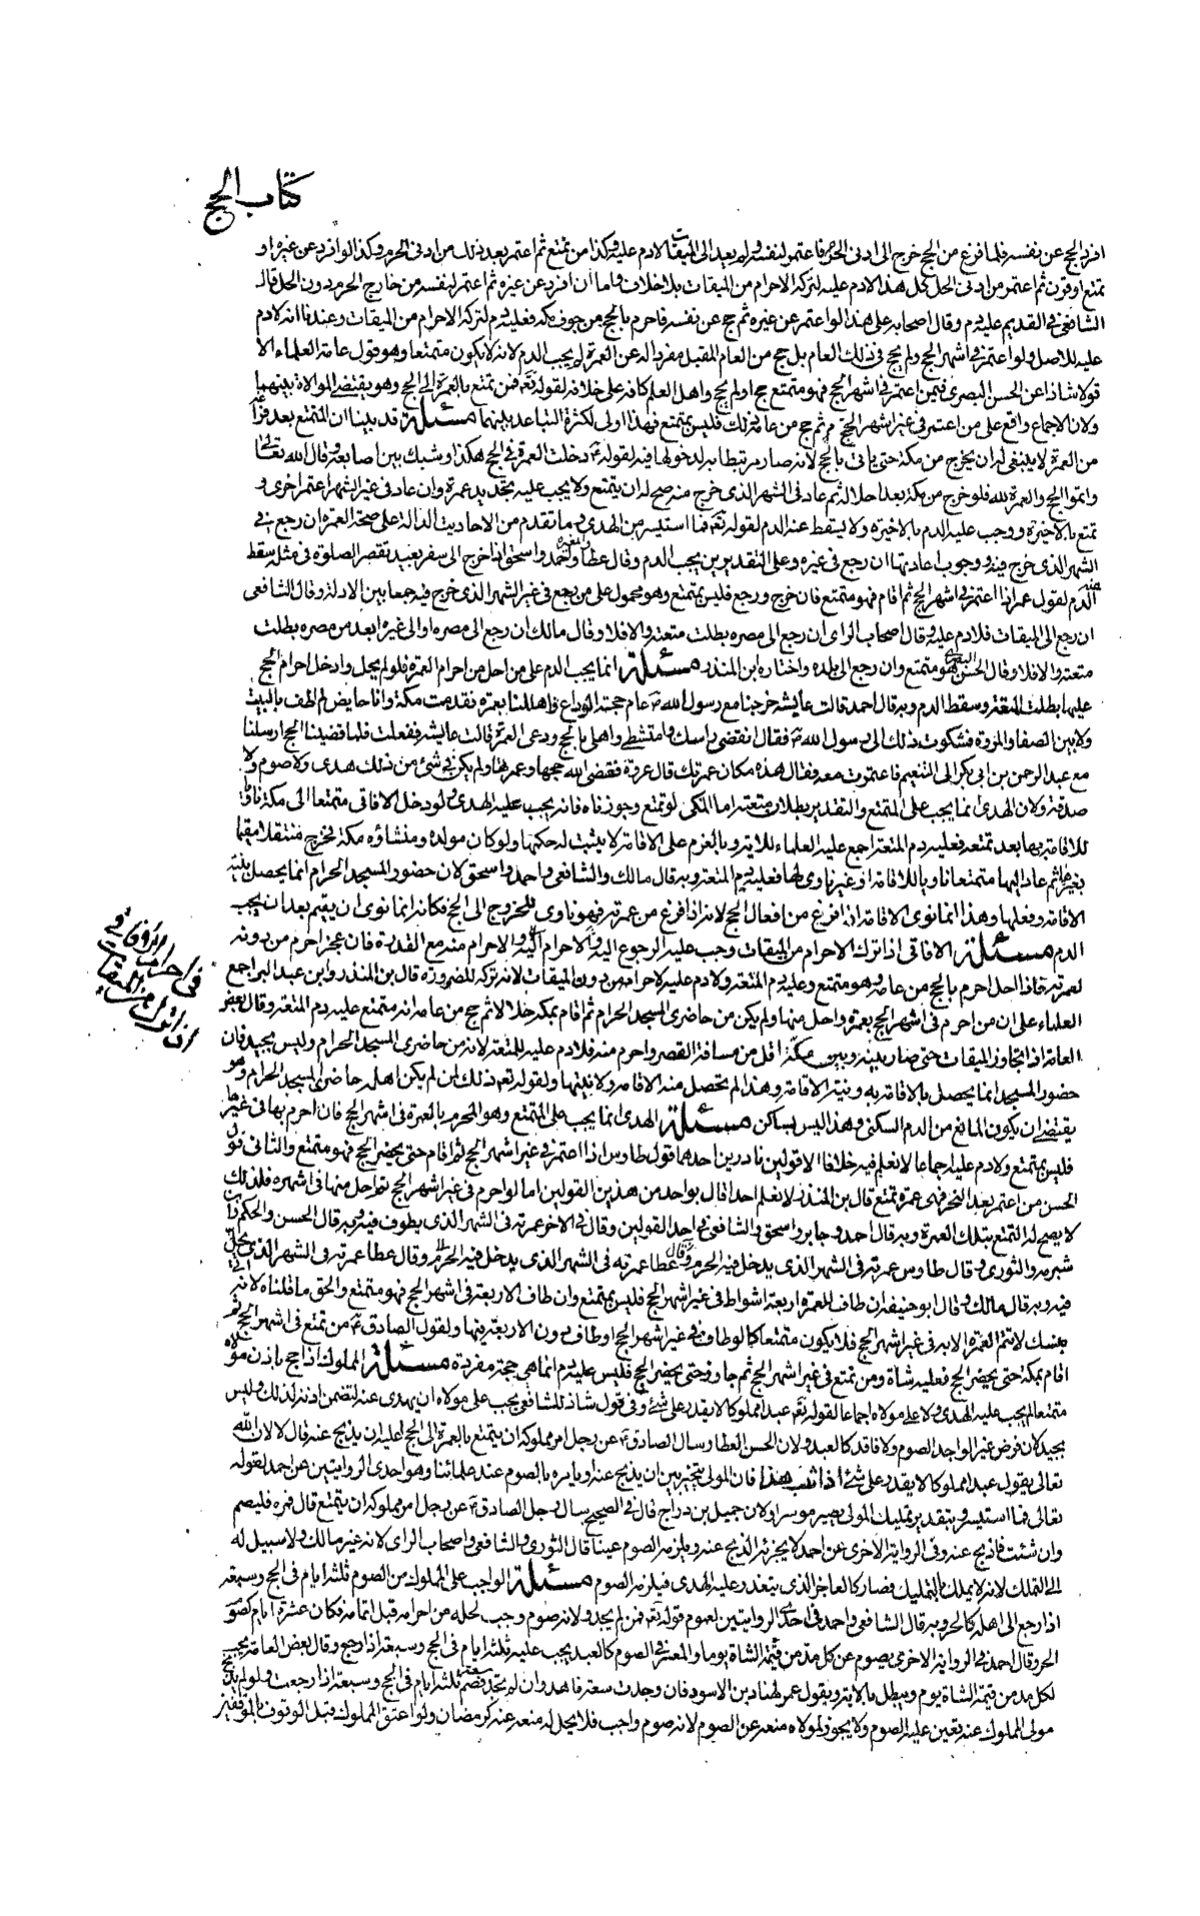 كتاب الحج
افرد الحج عن نفسه فلما فرغ من الحج خرج الى ادنى الحل فاعتمر لنفسه ولم يعد الى الميقات لادم عليه وكذا من تمتع ثم اعتمر بعد ذلك من ادنى الحرم وكذا لو افرد عن غيره او
تمتع او قرن ثم اعتمر من ادنى الحل كل هذا لادم عليه لتركه الاحرام من الميقات بلا خلاف واما ان افرد عن غيره ثم اعتمر لنفسه من خارج الحرم دون الحل قال
الشافعي في القديم عليه دم وقال اصحابه على هذا لو اعتمر عن غيره ثم حج عن نفسه فاحرم بالحج من جوف مكه فعليه دم لتركه الاحرام من الميقات وعندنا انه لادم
عليه للاصل ولو اعتمر في اشهر الحج ولم يحج في ذلك العام بل حج من العام المقبل مفردا له عن العمرة لم يجب الدم لانه لا يكون متمتعا وهو قول عامة العلماء الا
قولا شاذا عن الحسن البصرى فيمن اعتمر في اشهر الحج فهو متمتع حج او لم يحج واهل العلم كافه على خلافه لقوله تعـ فمن تمتع بالعمرة الى الحج وهو يقتضى الموالاة بينهما
ولان الاجماع واقع على من اعتمر في غير اشهر الحج ثم حج من عامه ذلك فليس بمتمتع فهذا اولى لكثرة التباعد بينهما مسئلة قد بينا ان المتمتع بعد فراغه
من العمرة لا ينبغى له ان يخرج من مكة حتى ياتى بالحج لانه صار مرتبطا به لدخولها فيه لقوله ع دخلت العمرة في الحج هكذا وشبك بين اصابعه وقال الله تعالى
واتموا الحج والعمرة لله فلو خرج من مكة بعد احلاله ثم عاد في الشهر الذى خرج منه صح له ان يتمتع ولا يجب عليه تجديد عمرة وان عاد في غير الشهر اعتمر اخرى و
تمتع بالاخيرة ووجب عليه الدم بالاخيرة ولا يسقط عنه الدم لقوله تعـ فما استيسر من الهدى وما تقدم من الاحاديث الدالة على صحة العمرة ان رجع في
الشهر الذى خرج فيه ووجوب اعادتها ان رجع في غيره وعلى التقديرين يجب الدم وقال عطا والمغيرة واحمد واسحق اذا خرج الى سفر بعيد تقصر الصلوة في مثله سقط
عنه الدم لقول عمر اذا اعتمر في اشهر الحج ثم اقام فهو متمتع فان خرج ورجع فليس بمتمتع وهو محمول على من رجع في غير الشهر الذى خرج فيه جمعا بين الادلة وقال الشافعى
ان رجع الى الميقات فلا دم عليه وقال اصحاب الراى ان رجع الى مصره بطلت متعته والا فلا وقال مالك ان رجع الى مصره او الى غيره ابعد من مصره بطلت
متعته والا فلا وقال الحسن البصرى هو متمتع وان رجع الى بلده واختاره ابن المنذر مسئلة انما يجب الدم على من احل من احرام العمرة فلو لم يحل وادخل احرام الحج
عليها بطلت المتعة وسقط الدم وبه قال احمد قالت عايشه خرجنا مع رسول الله ص عام حجة الوداع فاهللنا بعمرة فقدمت مكة وانا حايض لم اطف بالبيت
ولا بين الصفا والمروة فشكوت ذلك الى رسول الله ص فقال انقضى راسك وامتشطى واهلى بالحج ودعى العمرة قالت عايشه ففعلت فلما قضينا الحج ارسلنا
مع عبد الرحمن بن ابى بكر الى التنعيم فاعتمرت معه فقال هذه مكان عمرتك قال عروة فقضى الله حجها وعمرتها ولم يكن في شئ من ذلك هدى ولا صوم ولا
صدقة ولان الهدى انما يجب على المتمتع والتقدير بطلان متعته اما المكى لو تمتع وجوزناه فانه يجب عليه الهدى ولو دخل الافاقى متمتعا الى مكة ناويا
للاقامة بها بعد تمتعه فعليه دم المتعة اجمع عليه العلماء للاية وبالعزم على الاقامة لا يثبت له حكمها ولو كان مولده ومنشاؤه مكة فخرج منتقلا مقيما
بغيرها ثم عاد اليها متمتعا ناويا للاقامة او غير ناوى لها فعليه دم المتعة وبه قال مالك والشافعى واحمد واسحق لان حضور المسجد الحرام انما يحصل بنية
الاقامة وفعلها وهذا انما نوى الاقامة اذا فرغ من افعال الحج لانه اذا فرغ من عمرته فهو ناوى للخروج الى الحج فكانه انما نوى ان يقيم بعد ان يجب
الدم مسئلة الافاقى اذا ترك الاحرام من الميقات وجب عليه الرجوع اليه والاحرام منه مع القدرة فان عجز احرم من دونه
لعمرته فاذا احل احرم بالحج من عامه وهو متمتع وعليه دم المتعة ولا دم عليه لاحرامه من دون الميقات لانه تركه للضرورة قال بن المنذر وابن عبد البر اجمع
العلماء على ان من احرم في اشهر الحج بعمرة واحل منها ولم يكن من حاضرى المسجد الحرام ثم اقام بمكه حلالا ثم حج من عامه انه متمتع عليه دم المتعة وقال بعض
العامة اذا تجاوز الميقات حتى صار بينه وبين مكة اقل من مسافة القصر واحرم منه فلا دم عليه للمتعة لانه من حاضرى المسجد الحرام وليس بجيد فان
حضور المسجد انما يحصل بالاقامة به ونية الاقامة وهذا لم تحصل منه الاقامة ولا نيتها ولقوله تعـ ذلك لمن لم يكن اهله حاضرى المسجد الحرام وهو
يقتضى ان يكون المانع من الدم السكنى وهذا ليس بساكن مسئلة الهدى انما يجب على المتمتع وهو المحرم بالعمرة في اشهر الحج فان احرم بها في غيرها
فليس بمتمتع ولا دم عليه اجماعا لا نعلم فيه خلافا الا قولين نادرين احدهما قول طاوس اذا اعتمر في غير اشهر الحج ثم اقام حتى يحضر الحج فهو متمتع والثانى قول
الحسن من اعتمر بعد النحر فهى عمرة تمتع قال بن المنذر لا نعلم احدا قال بواحد من هذين القولين اما لو احرم في غير اشهر الحج ثم احل منها في اشهره فلذلك
لا يصح له التمتع بتلك العمرة وبه قال احمد وجابر واسحق والشافعى في احد القولين وقال في الاخر عمرته في الشهر الذى يطوف فيه وبه قال الحسن والحكم وابن
شبرمه والثورى وقال طاوس عمرته في الشهر الذى يدخل فيه الحرم وقال عطا عمرته في الشهر الذى يحل
فيه وبه قال مالك وقال ابو حنيفه ان طاف للعمرة اربعة اشواط في غير اشهر الحج فليس بمتمتع وان طاف الاربعة في اشهر الحج فهو متمتع والحق ما قلناه لانه اتى
بنسك لا تتم العمرة الا به في غير اشهر الحج فلا يكون متمتعا كما لو طاف في غير اشهر الحج او طاف دون الاربعة فيها ولقول الصادق ع من تمتع في اشهر الحج ثم
اقام بمكة حتى يحضر الحج فعليه شاة ومن تمتع في غير اشهر الحج ثم جاور حتى يحضر الحج فليس عليه دم انما هى حجة مفردة مسئلة المملوك اذا حج باذن مولاه
متمتعا لم يجب عليه الهدى ولا على مولاه اجماعا لقوله تعـ عبدا مملوكا لا يقدر على شئ وفي قول شاذ للشافعى يجب على مولاه ان يهدى عنه لتضمن اذنه لذلك وليس
بجيد لان فرض غير الواجد الصوم ولا فاقد كالعبد ولان الحسن العطار سال الصادق ع عن رجل امر مملوكه ان يتمتع بالعمرة الى الحج اعليه ان يذبح عنه قال لا لان الله
تعالى يقول عبدا مملوكا لا يقدر على شئ اذا ثبت هذا فان المولى يتخير بين ان يذبح عنه او يامره بالصوم عند علمائنا وهو احدى الروايتين عن احمد لقوله
تعالى فما استيسر وبتقدير تمليك المولى يصير موسرا ولان جميل بن دراج قال في الصحيح سال رجل الصادق ع عن رجل امر مملوكه ان يتمتع قال فمره فليصم
وان شئت فاذبح عنه وفى الرواية الاخرى عن احمد لا يجزئه الذبح عنه ويلزمه الصوم عينا قال الثورى والشافعى واصحاب الراى لانه غير مالك ولا سبيل له
الى التملك لانه لا يملك بالتمليك فصار كالعاجز الذى يتعذر عليه الهدى فيلزمه الصوم مسئلة الواجب على المملوك من الصوم ثلثة ايام في الحج وسبعة
اذا رجع الى اهله كالحر وبه قال الشافعى واحمد في احدى الروايتين لعموم قوله تعـ فمن لم يجد ولانه صوم وجب لحله من احرامه قبل اتمامه فكان عشرة ايام كصوم
الحر وقال احمد في الرواية الاخرى يصوم عن كل مد من قيمة الشاة يوما والمعسر في الصوم كالعبد يجب عليه ثلثة ايام في الحج وسبعة اذا رجع وقال بعض العامة يجب
لكل مد من قيمة الشاة يوم ويبطل بالاية وبقول عمر لهناد بن الاسود فان وجدت سعة فاهد وان لم تجد سعة فصم ثلثة ايام في الحج وسبعة اذا رجعت ولو لم يذبح
مولى المملوك عنه تعين عليه الصوم ولا يجوز لمولاه منعه عن الصوم لانه صوم واجب فلا يحل له منعه عنه كرمضان ولو اعتق المملوك قبل الوقوف بالموقفين
في احرام الافاقى
اذا ترك من الميقات